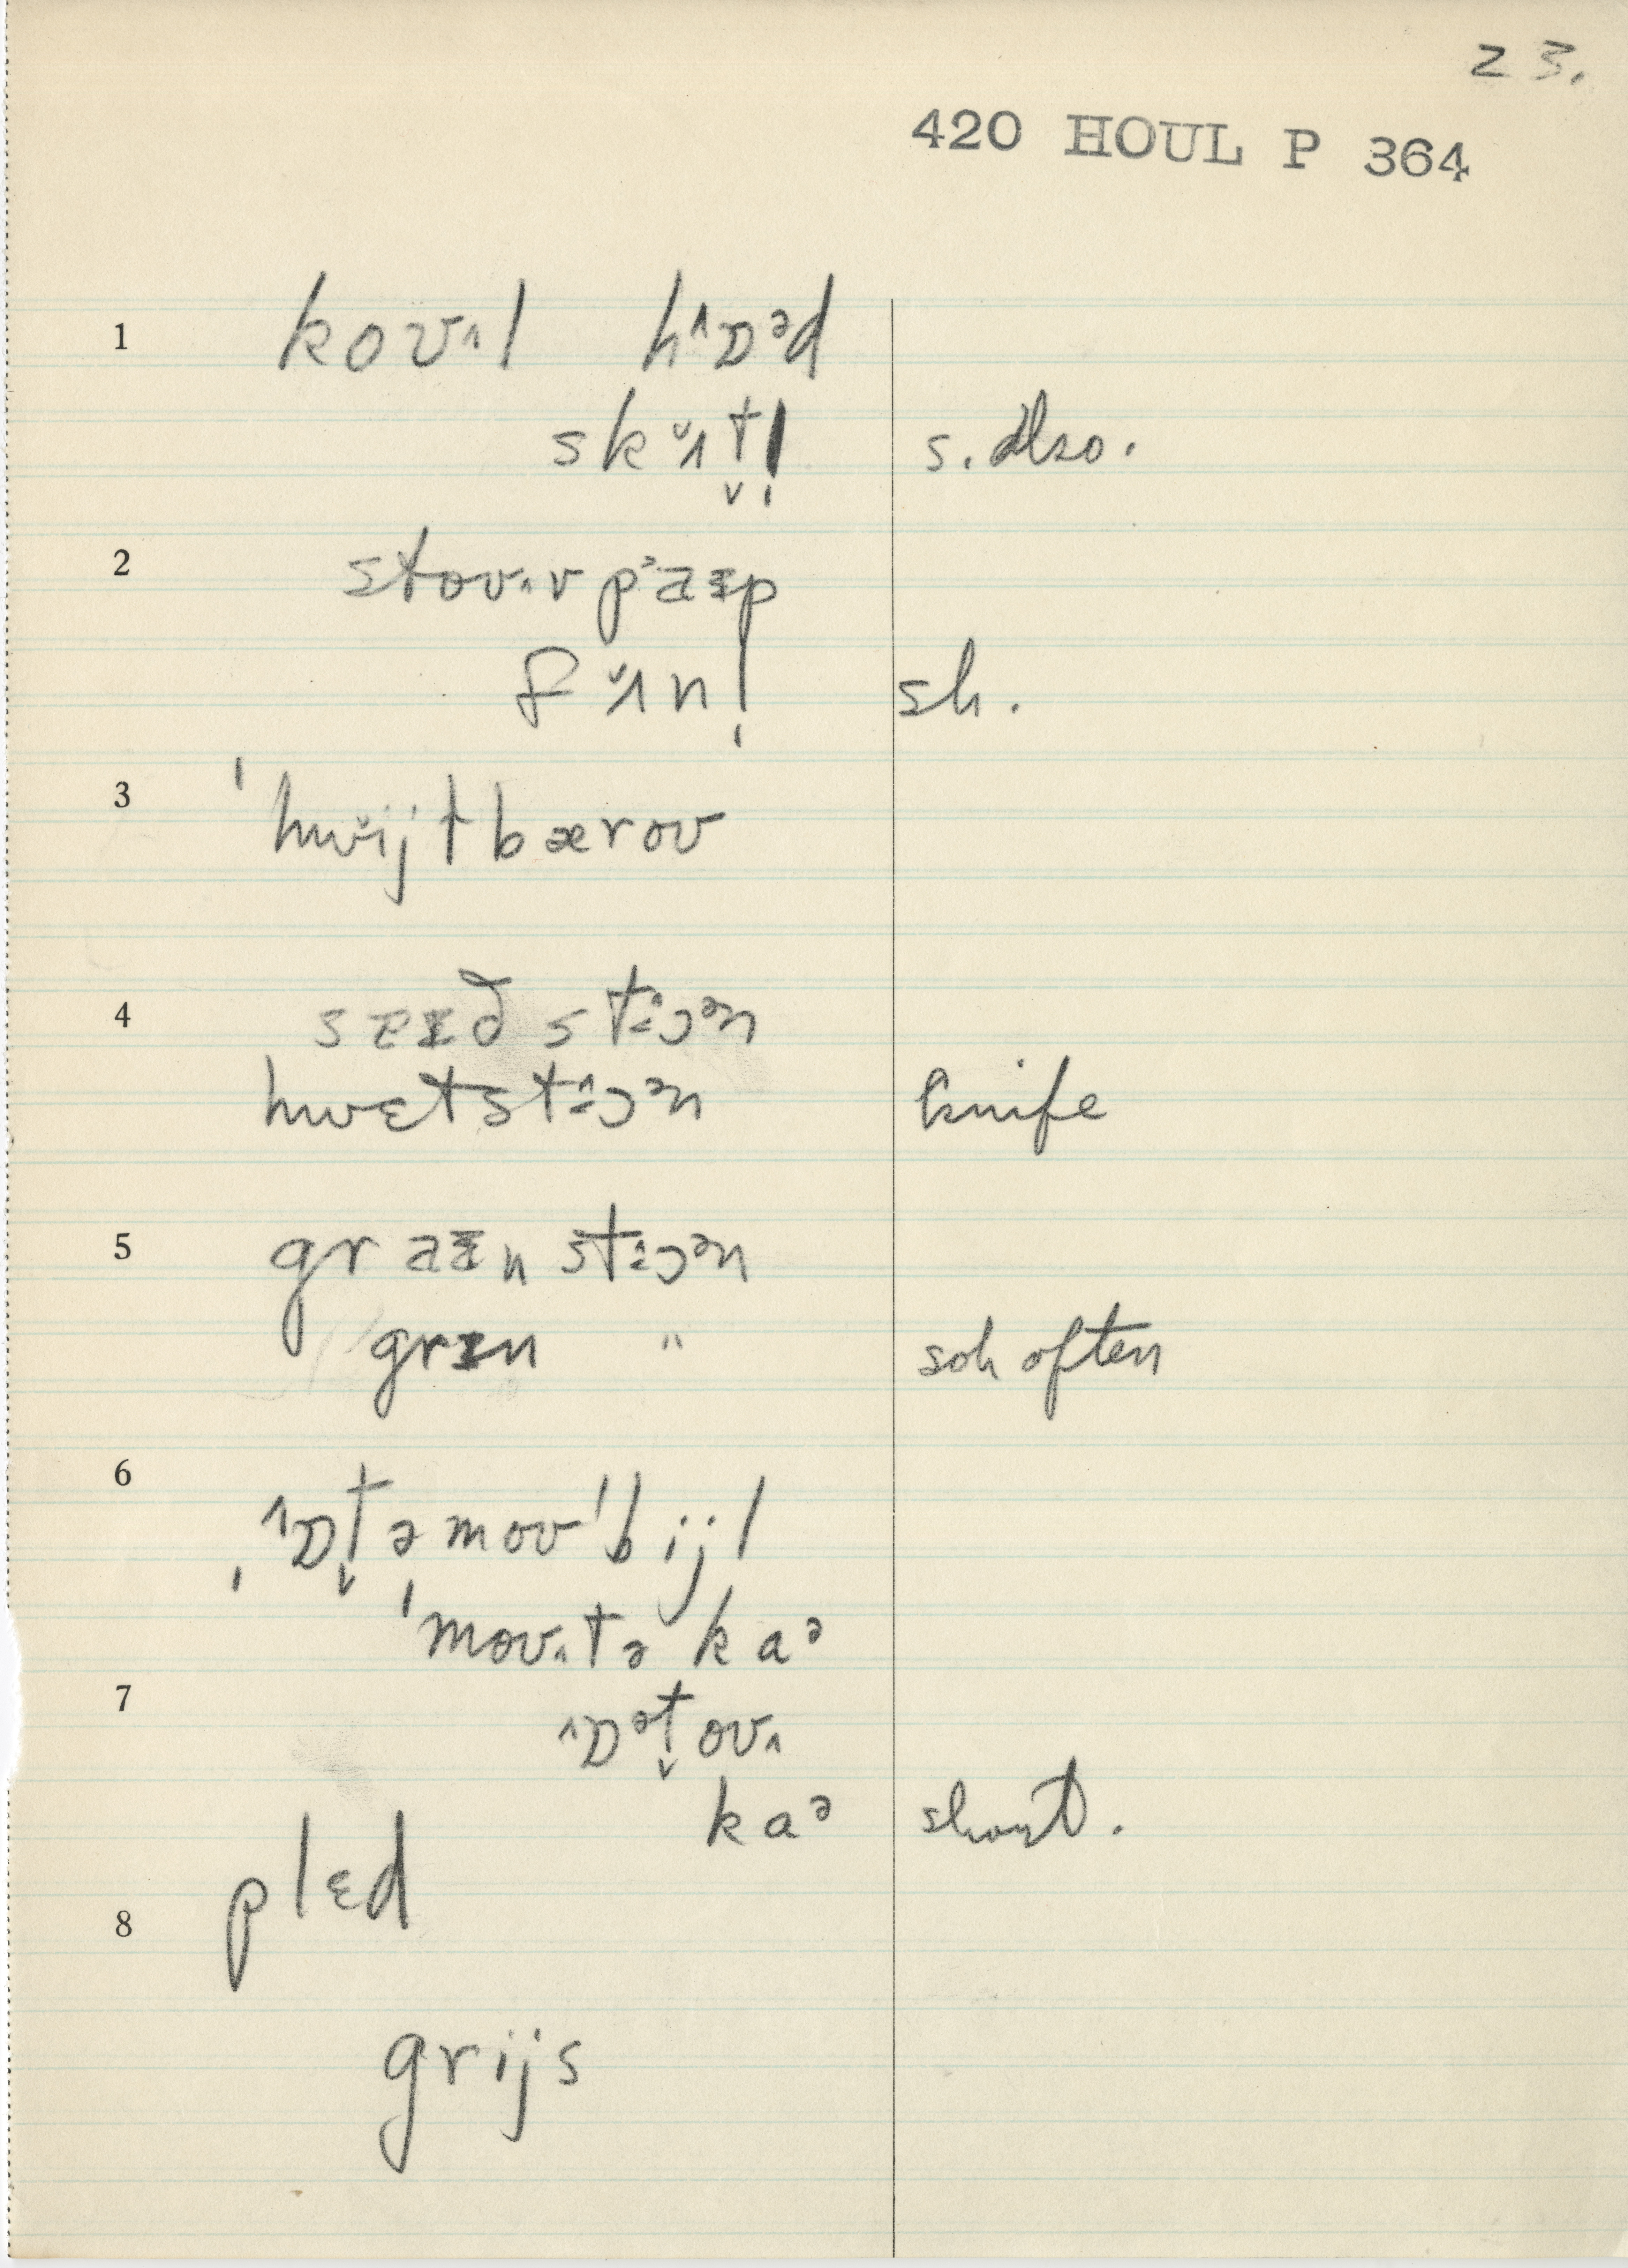 23.
420 HOUL P 364
1 koʊ˄l h˄ɒᵊd
skᵿ˄t̬l̩ s. also.
2 stoʊ˄v pᵊaɪp
fᵿ˄nl̩ sh.
3 ˈhwijtbæroʊ
4 seɪd st˄ɔᵊn
hwɛtst˄ɔᵊn knife
5 graɪn st˄ɔᵊn
grɪn " soh often
6 ˌ˄ɒt̬əmoʊˈbijl
ˈmoʊ˄tə kaᵊ
7 ˄ɒᵊt̬oʊ˄
kaᵊ short.
plɛd
8
grijs